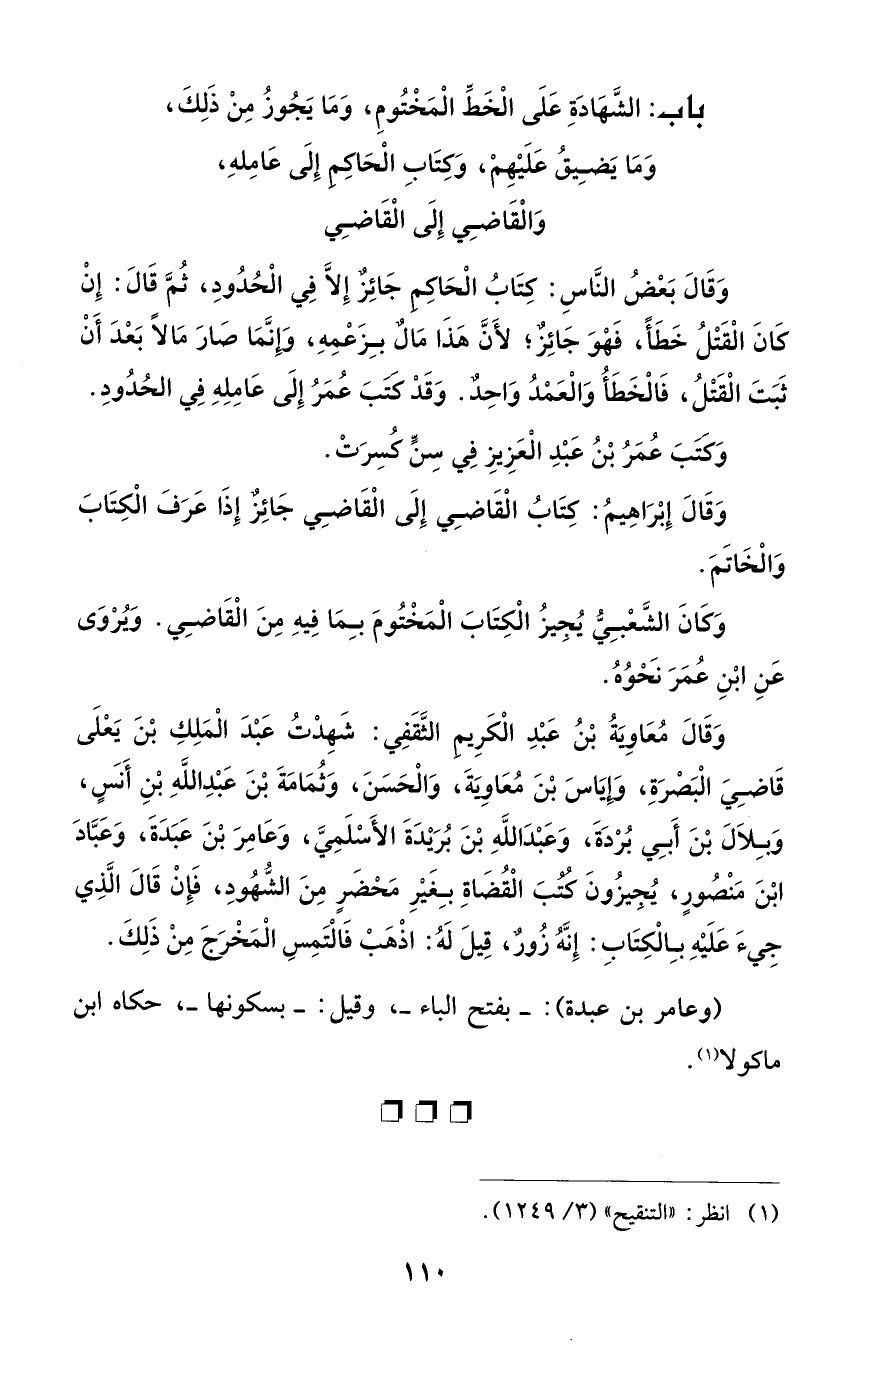 باب: الشَّهَادَةِ عَلَى الْخَطِّ الْمَخْتُومِ، وَمَا يَجُوزُ مِنْ ذَلِكَ،
وَمَا يَضِيقُ عَلَيْهِمْ، وَكِتَابِ الْحَاكِمِ إِلَى عَامِلِهِ،
وَالْقَاضِي إِلَى الْقَاضِي
وَقَالَ بَعْضُ النَّاسِ: كِتَابُ الْحَاكِمِ جَائِزٌ إِلاَّ فِي الْحُدُودِ، ثُمَّ قَالَ: إِنْ
كَانَ الْقَتْلُ خَطَأً، فَهْوَ جَائِزٌ؛ لأَنَّ هَذَا مَالٌ بِزَعْمِهِ، وَإِنَّمَا صَارَ مَالاً بَعْدَ أَنْ
ثَبَتَ الْقَتْلُ، فَالْخَطَأُ وَالْعَمْدُ وَاحِدٌ. وَقَدْ كَتَبَ عُمَرُ إِلَى عَامِلِهِ فِي الْحُدُودِ.
وَكَتَبَ عُمَرُ بْنُ عَبْدِ الْعَزِيزِ فِي سِنٍّ كُسِرَتْ.
وَقَالَ إِبْرَاهِيمُ: كِتَابُ الْقَاضِي إِلَى الْقَاضِي جَائِزٌ إِذَا عَرَفَ الْكِتَابَ
وَالْخَاتَمَ.
وَكَانَ الشَّعْبِيُّ يُجِيزُ الْكِتَابَ الْمَخْتُومَ بِمَا فِيهِ مِنَ الْقَاضِي. وَيُرْوَى
عَنِ ابْنِ عُمَرَ نَحْوُهُ.
وَقَالَ مُعَاوِيَةُ بْنُ عَبْدِ الْكَرِيمِ الثَّقَفِي: شَهِدْتُ عَبْدَ الْمَلِكِ بْنَ يَعْلَى
قَاضِيَ الْبَصْرَةِ، وَإِيَاسَ بْنَ مُعَاوِيَةَ، وَالْحَسَنَ، وَثُمَامَةَ بْنَ عَبْدِاللَّهِ بْنِ أَنَسٍ،
وَبِلاَلَ بْنَ أَبِي بُرْدَةَ، وَعَبْدَاللَّهِ بْنَ بُرَيْدَةَ الأَسْلَمِيَّ، وَعَامِرَ بْنَ عَبَدَةَ، وَعَبَّادَ
ابْنَ مَنْصُورٍ، يُجِيزُونَ كُتُبَ الْقُضَاةِ بِغَيْرِ مَحْضَرٍ مِنَ الشُّهُودِ، فَإِنْ قَالَ الَّذِي
جِيءَ عَلَيْهِ بِالْكِتَابِ: إِنَّهُ زُورٌ، قِيلَ لَهُ: اذْهَبْ فَالْتَمِسِ الْمَخْرَجَ مِنْ ذَلِكَ.
(وعامر بن عبدة): ـ بفتح الباء ـ، وقيل: ـ بسكونها ـ، حكاه ابن
ماكولا(١).
(١) انظر: «التنقيح» (٣/ ١٢٤٩).
١١٠